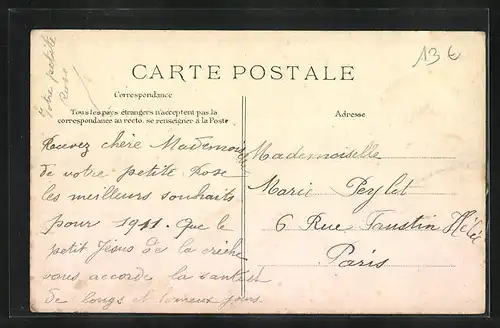 Votre petite
Rose
13 €
CARTE POSTALE
Correspondance
Tous les pays étrangers n'acceptent pas la
correspondance au recto, se renseigner à la Poste
Adresse
Recevez chère Mademoiselle
de votre petite Rose
les meilleurs souhaits
pour 1911. Que le
petit Jésus de la crèche
vous accorde la santé et
de longs et heureux jours
Mademoiselle
Marie Peylet
6 Rue Faustin Hélie
Paris